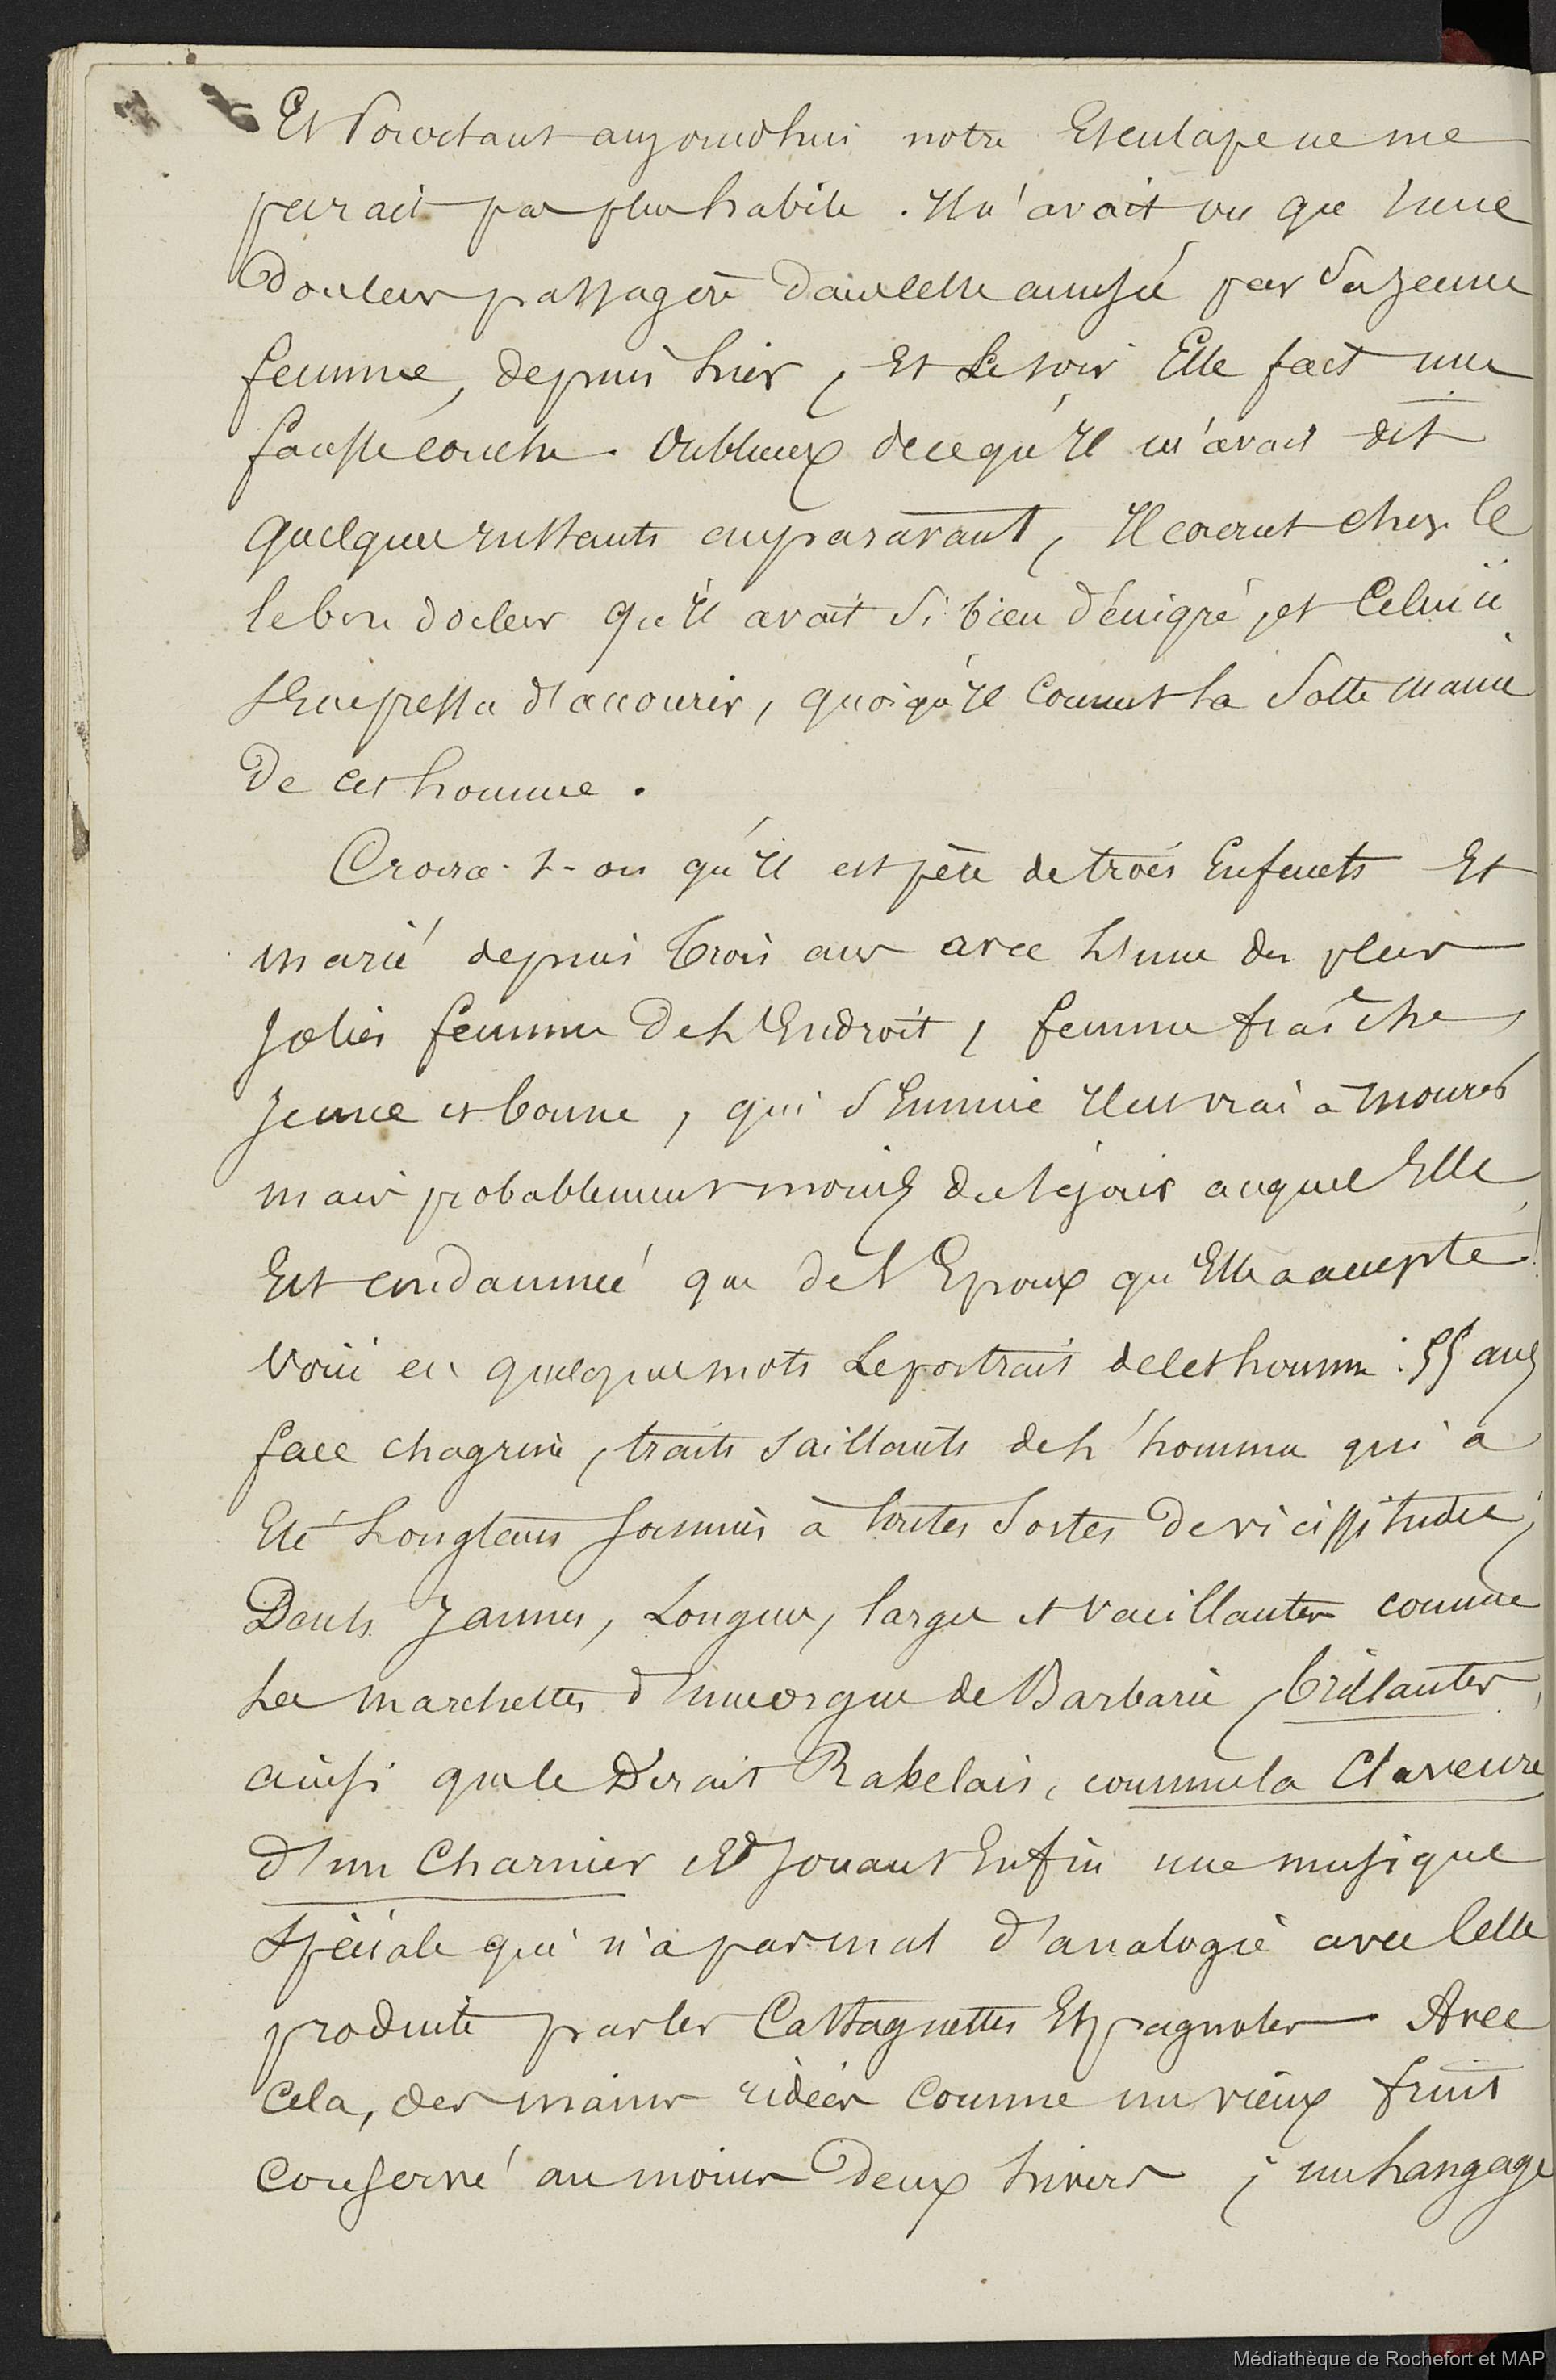 Et Pourtant aujourdhui notre Esculape ne me
parait pas plus habile. Il n'avait vu que l'une
Douleur passagère dans celle accusée par Sa jeune
femme, depuis hier, Et Le soir Elle fait une
fausse couche. Oublieux de ce qu'Il m'avait dit
quelques instants auparavant, Il courut chez le
le bon docteur qu'Il avait Si bien dénigré, et Celui ci
s'Empressa d'accourir, quoiqu'Il Connut la Sotte manie
De cet homme.
Croira-t-on qu'Il est père de trois Enfants Et
marié depuis Trois ans avec L'une des plus
Jolies femmes De L'Endroit, femme fraîche
Jeune et bonne, qui S'Ennuie Il est vrai à mourir
mais probablement moins du séjour auquel Elle
Est condamnée que de l'Epoux qu'Elle a accepté.
Voici en quelques mots Le portrait de cet homme : 55 ans
face chagrine, traits saillants de L'homme qui a
Eté Longtems soumis à toutes Sortes De vicissitudes,
Dents Jaunes, Longues, larges et vacillantes comme
Les marchettes d'une orgue de Barbarie, brillantes,
ainsi que le Dirait Rabelais, comme la Claveure
d'un Charnier Et Jouant Enfin une musique
Spéciale qui n'a pas mal d'analogie avec Celle
produite par les Castagnettes Espagnoles. Avec
Cela, des mains ridées Comme un vieux fruit
Conservé au moins Deux hivers ; un Langage
Médiathèque de Rochefort et MAP